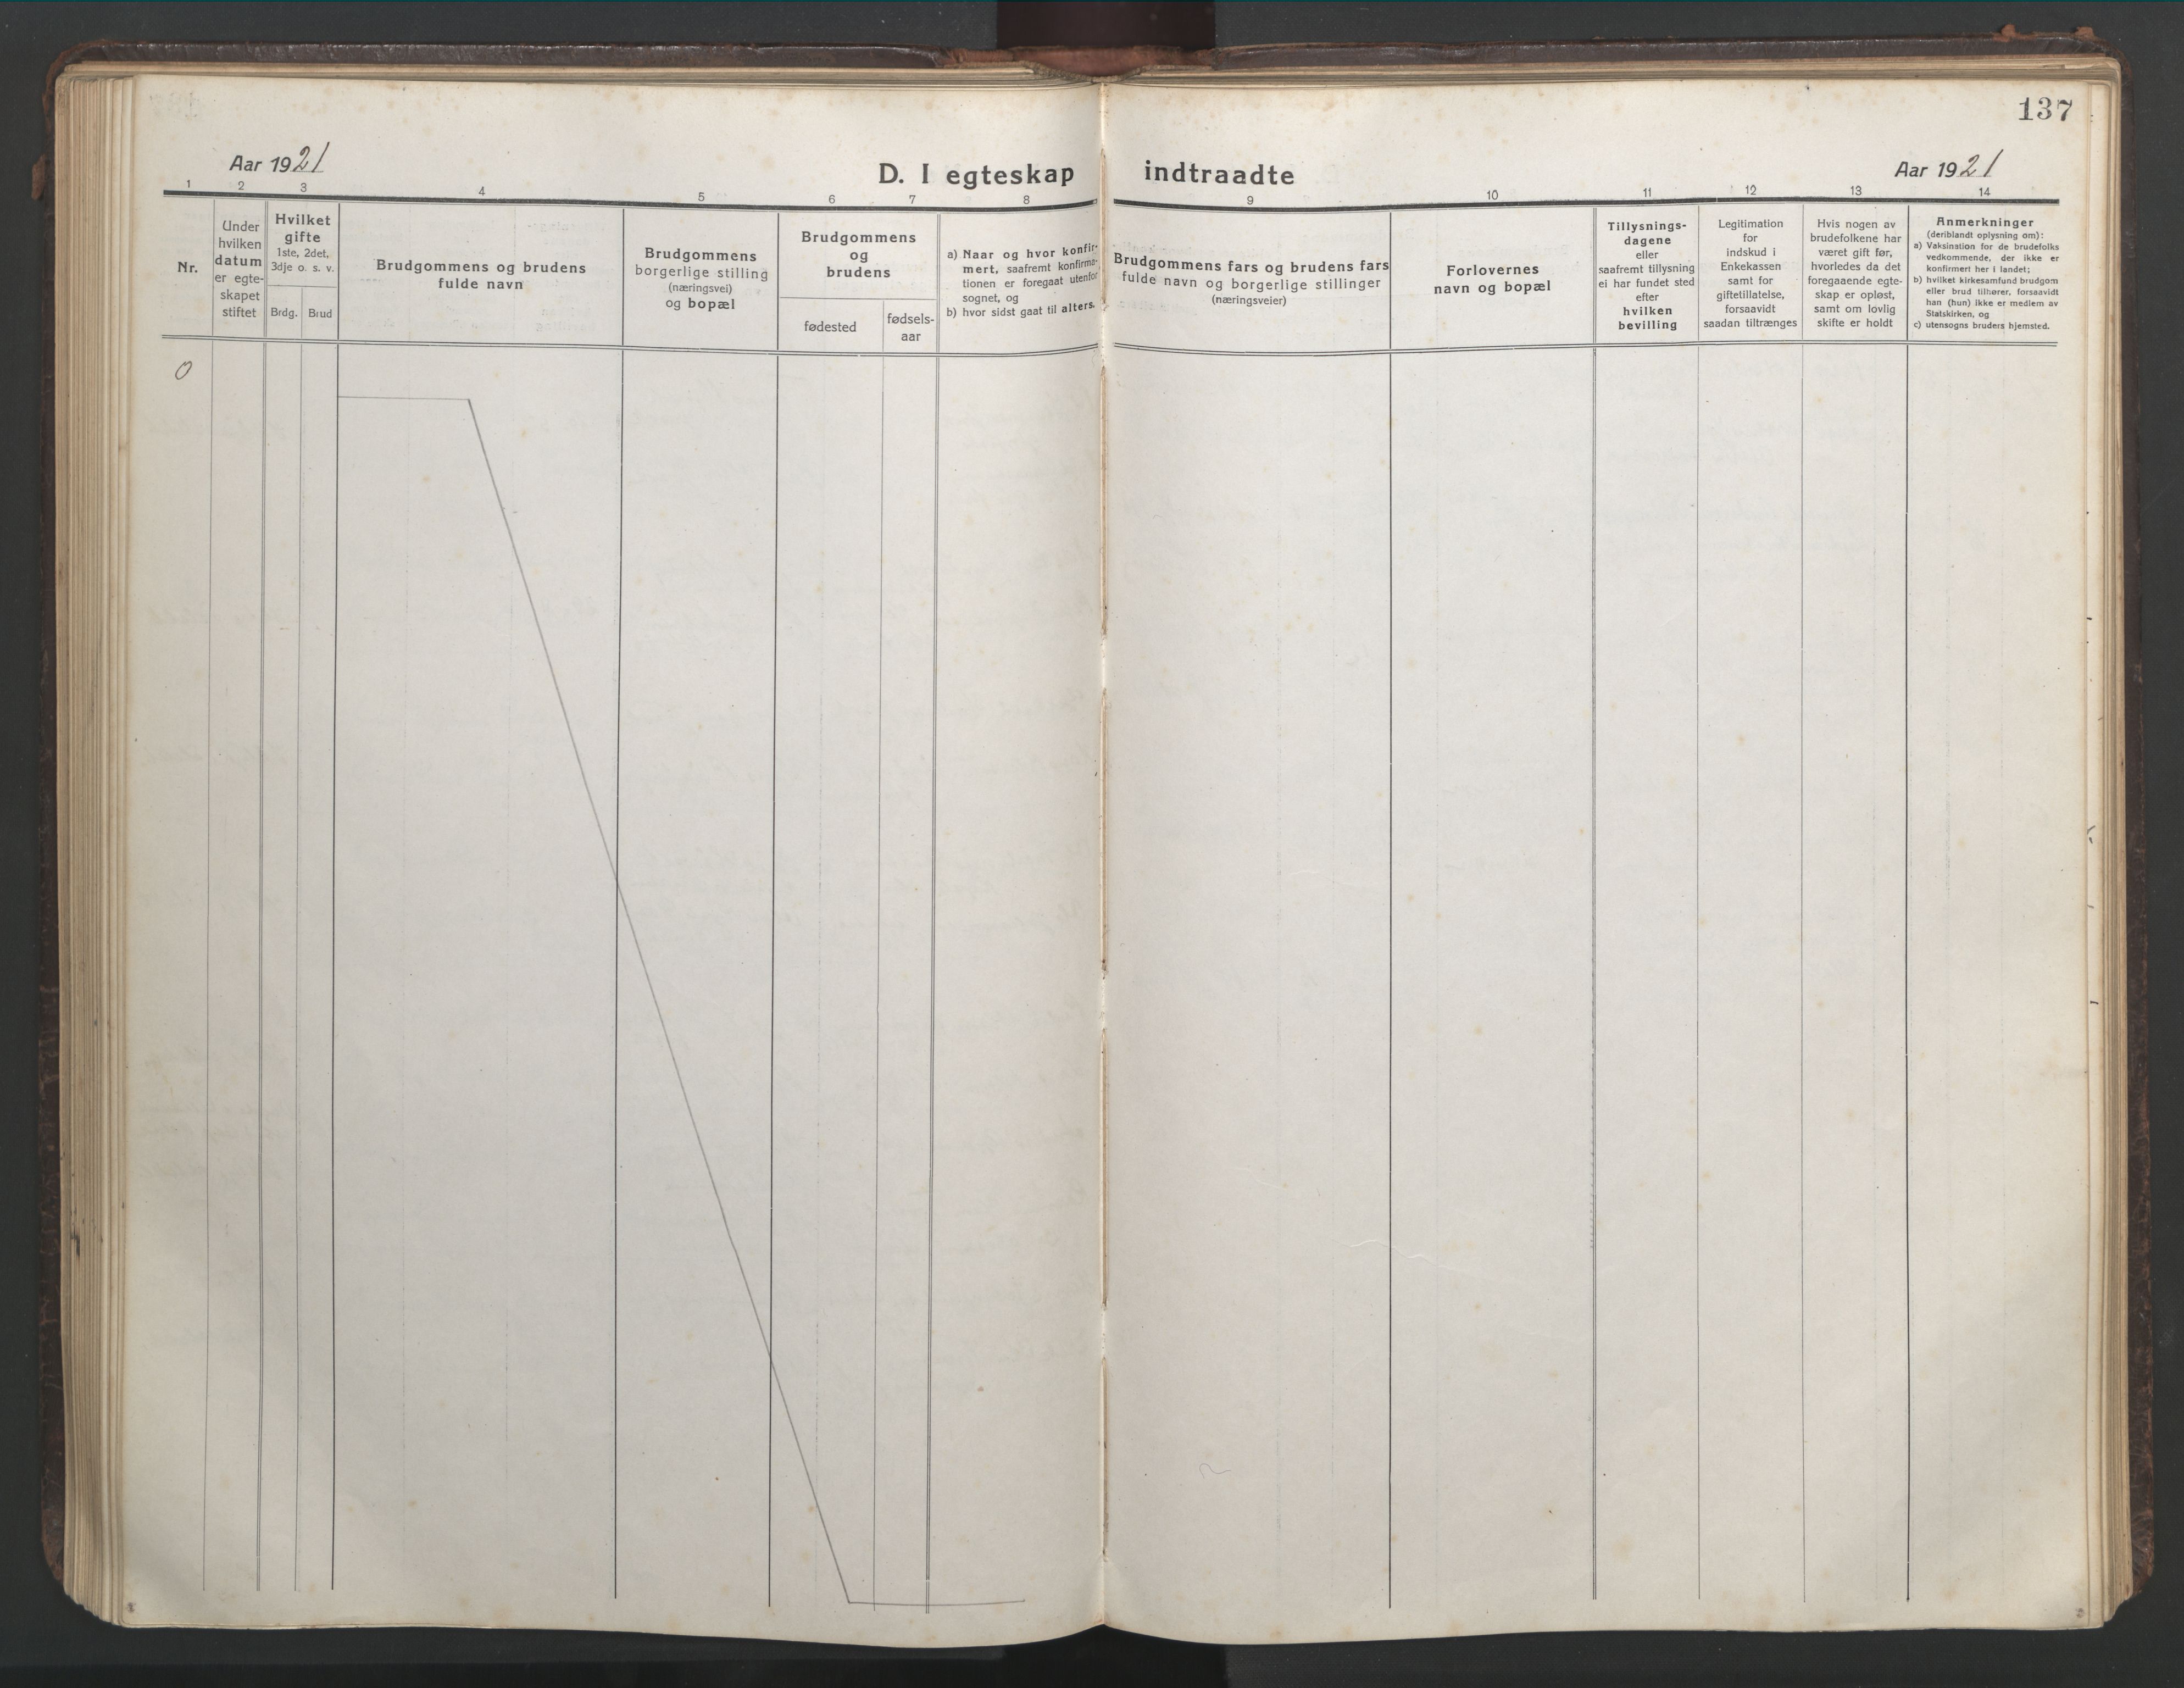 137
Aar 1921
D. I egteskap indtraadte
Aar 1921
1
2
3
4
5
6
7
8
9
10
11
12
13
14
Nr.
Under
hvilken
datum
er egte-
skapet
stiftet
Hvilket
gifte
1ste, 2det,
3dje o. s. v.
Brdg.
Brud
Brudgommens og brudens
fulde navn
Brudgommens
borgerlige stilling
(næringsvei)
og bopæl
Brudgommens
og
brudens
fødested
fødsels-
aar
a) Naar og hvor konfir-
mert, saafremt konfirma-
tionen er foregaat utenfor
sognet, og
b) hvor sidst gaat til alters.
Brudgommens fars og brudens fars
fulde navn og borgerlige stillinger
(næringsveier)
Forlovernes
navn og bopæl
Tillysnings-
dagene
eller
saafremt tillysning
ei har fundet sted
efter
hvilken
bevilling
Legitimation
for
indskud i
Enkekassen
samt for
giftetillatelse,
forsaavidt
saadan tiltrænges
Hvis nogen av
brudefolkene har
været gift før,
hvorledes da det
foregaaende egte-
skap er opløst,
samt om lovlig
skifte er holdt
Anmerkninger
(deriblandt oplysning om):
a) Vaksination for de brudefolks
vedkommende, der ikke er
konfirmert her i landet;
b) hvilket kirkesamfund brudgom
eller brud tilhører, forsaavidt
han (hun) ikke er medlem av
Statskirken, og
c) utensogns bruders hjemsted.
0